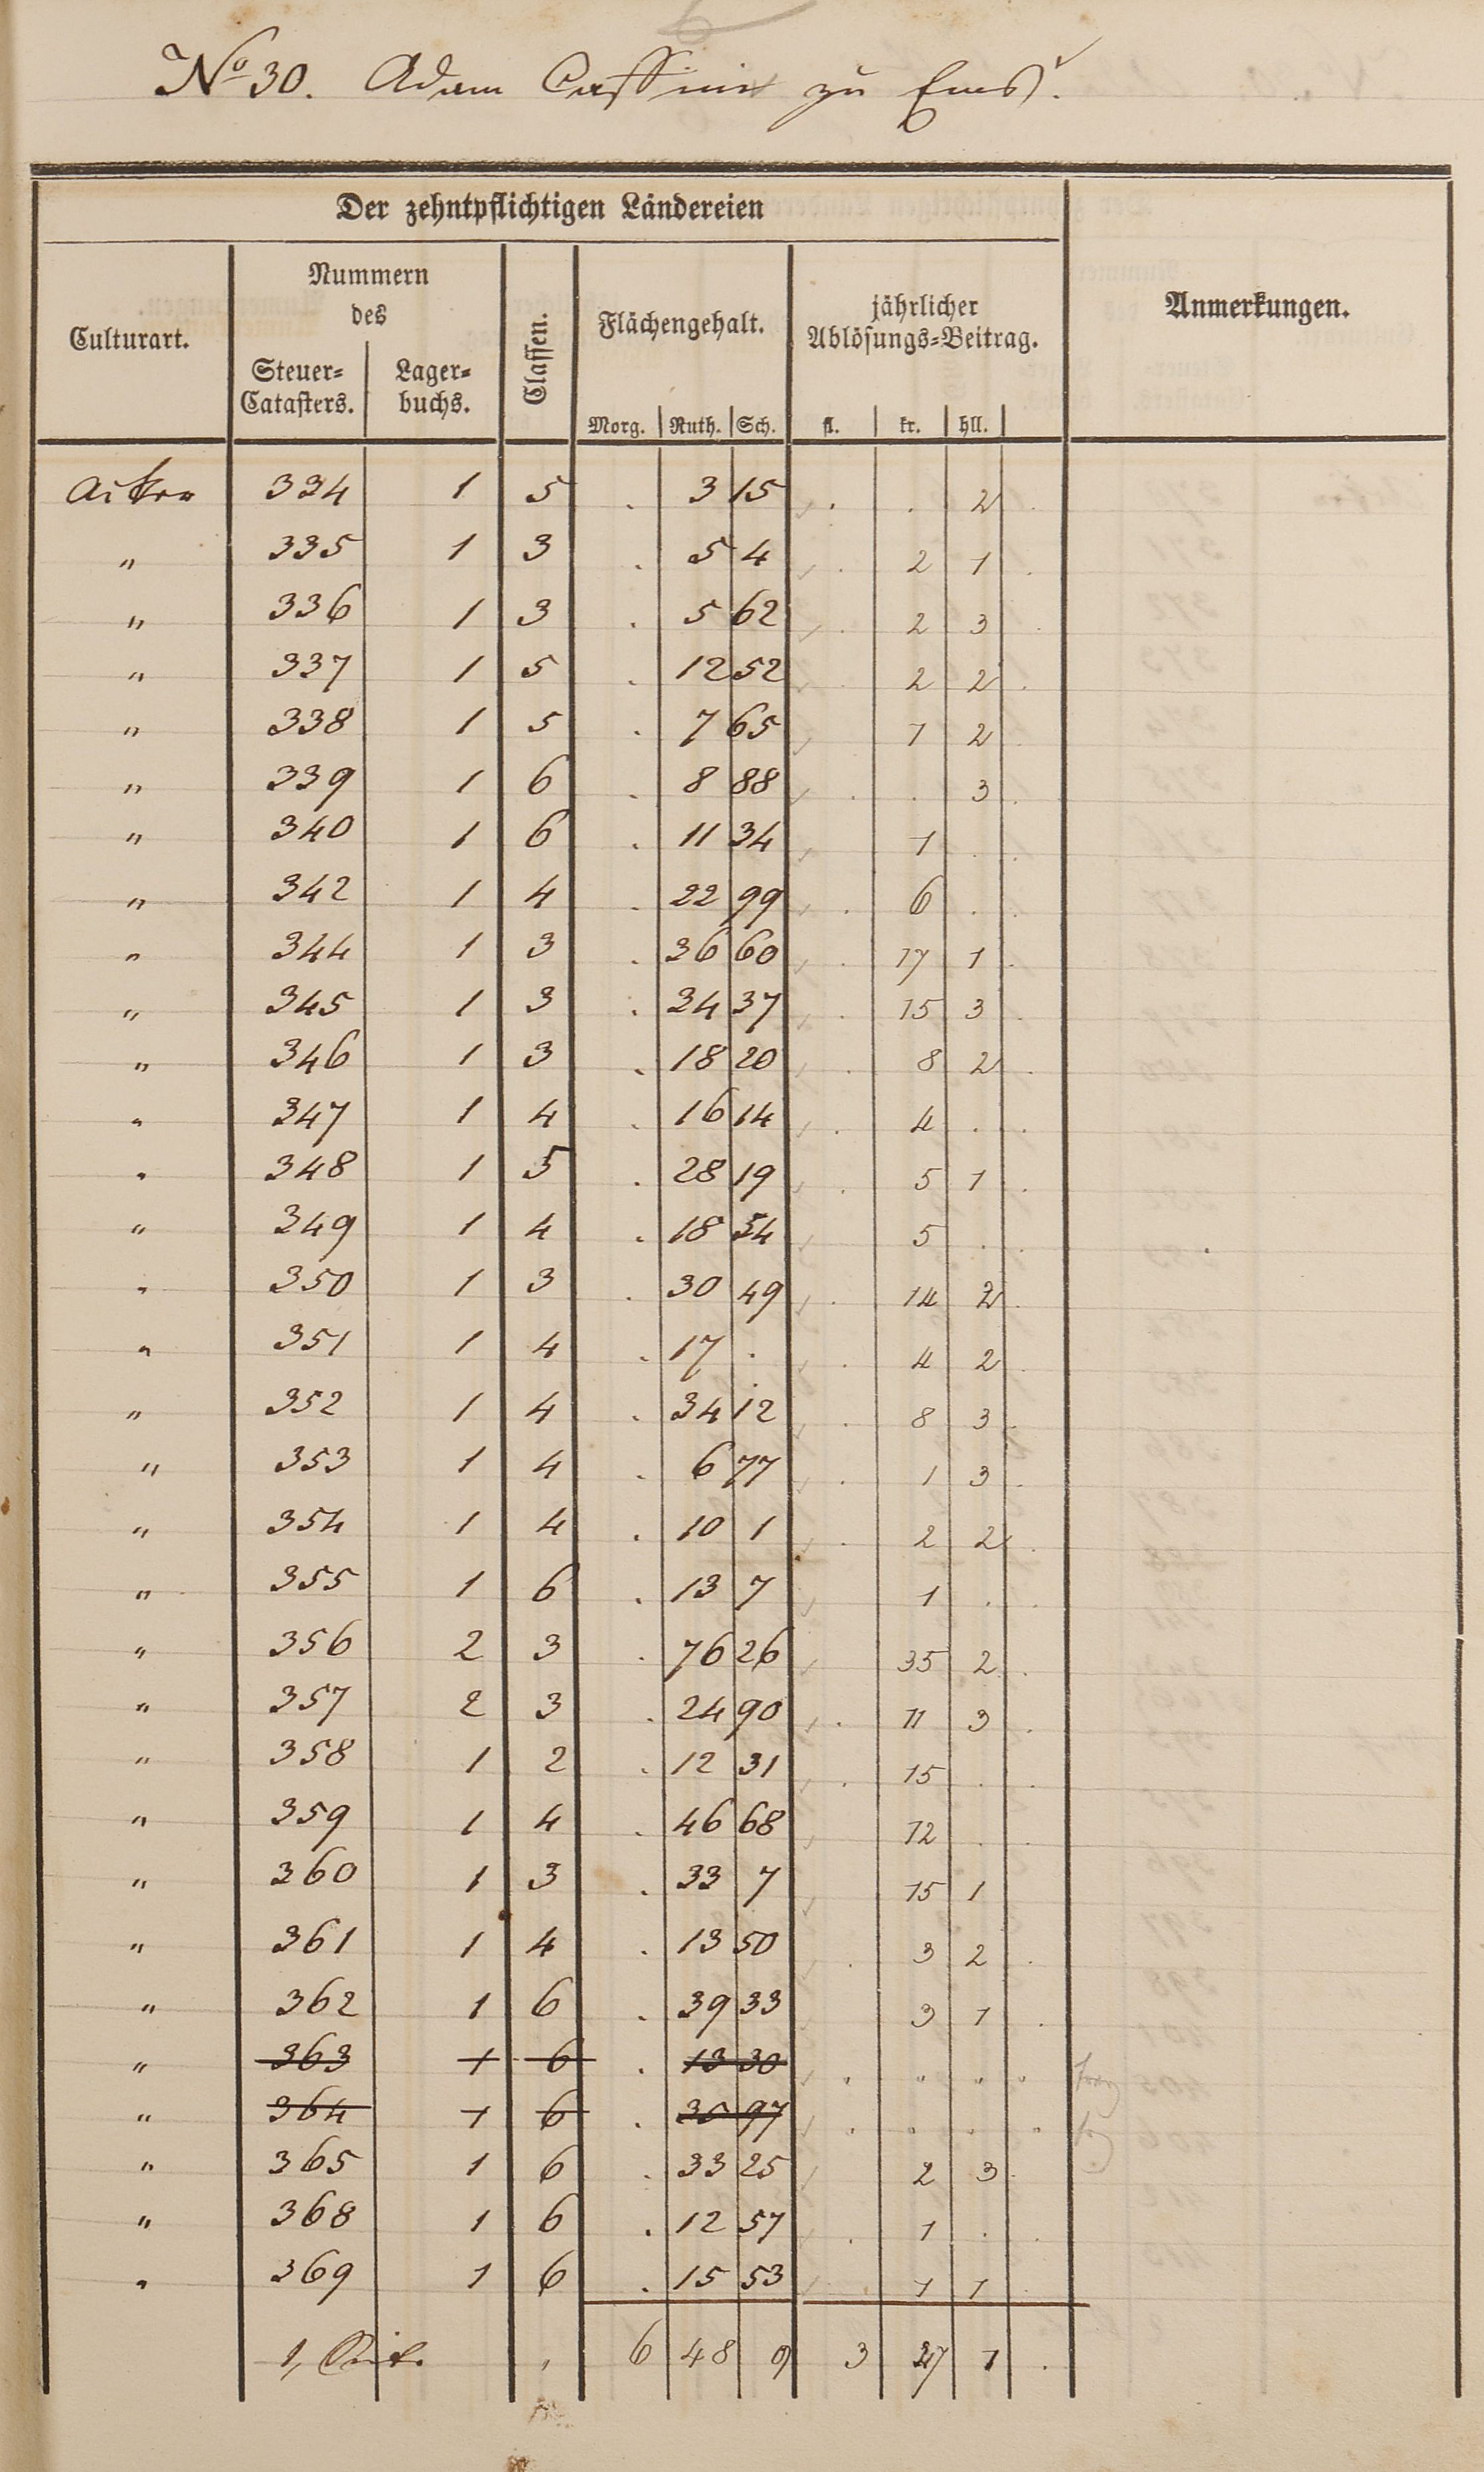 No 30. Adam Cassinis zu Ems.
Der zehntpflichtigen Ländereien
Anmerkungen.
Culturart.
Nummern
des
Steuer-
Catasters.
Lager-
buchs.
Classen.
Flächengehalt.
Morg. Ruth. Sch.
jährlicher
Ablösungs-Beitrag.
fl. kr. hll.
Acker 334 1 5 . 3 15 . . 2
" 335 1 3 . 5 4 . 2 1
" 336 1 3 . 5 62 . 2 3
" 337 1 5 . 12 52 . 2 2
" 338 1 5 . 7 65 1 2
" 339 1 6 . 8 88 . . 3
" 340 1 6 . 11 34 1 .
" 342 1 4 . 22 99 . 6 .
" 344 1 3 . 36 60 . 17 1
" 345 1 3 . 34 37 . 15 3
" 346 1 3 . 18 20 . 8 2
" 347 1 4 . 16 14 . 4 .
" 348 1 5 . 28 19 . 5 1
" 349 1 4 . 18 54 5 .
" 350 1 3 . 30 49 . 14 2
" 351 1 4 . 17 . . 4 2
" 352 1 4 . 34 12 . 8 3
" 353 1 4 . 6 77 . 1 3
" 354 1 4 . 10 1 . 2 2
" 355 1 6 . 13 7 1 .
" 356 2 3 . 76 26 35 2
" 357 2 3 . 24 90 . 11 3
" 358 1 2 . 12 31 . 15 .
" 359 1 4 . 46 68 12 .
" 360 1 3 . 33 7 15 1
" 361 1 4 . 13 50 . 3 2
" 362 1 6 . 39 33 3 1
" 363 1 6 . 13 30 . " "
" 364 1 6 . 35 97 . " "
" 365 1 6 . 33 25 2 3
" 368 1 6 . 12 57 . 1 .
" 369 1 6 . 15 53 . 1 1
1, 6 48 9 3 27 1